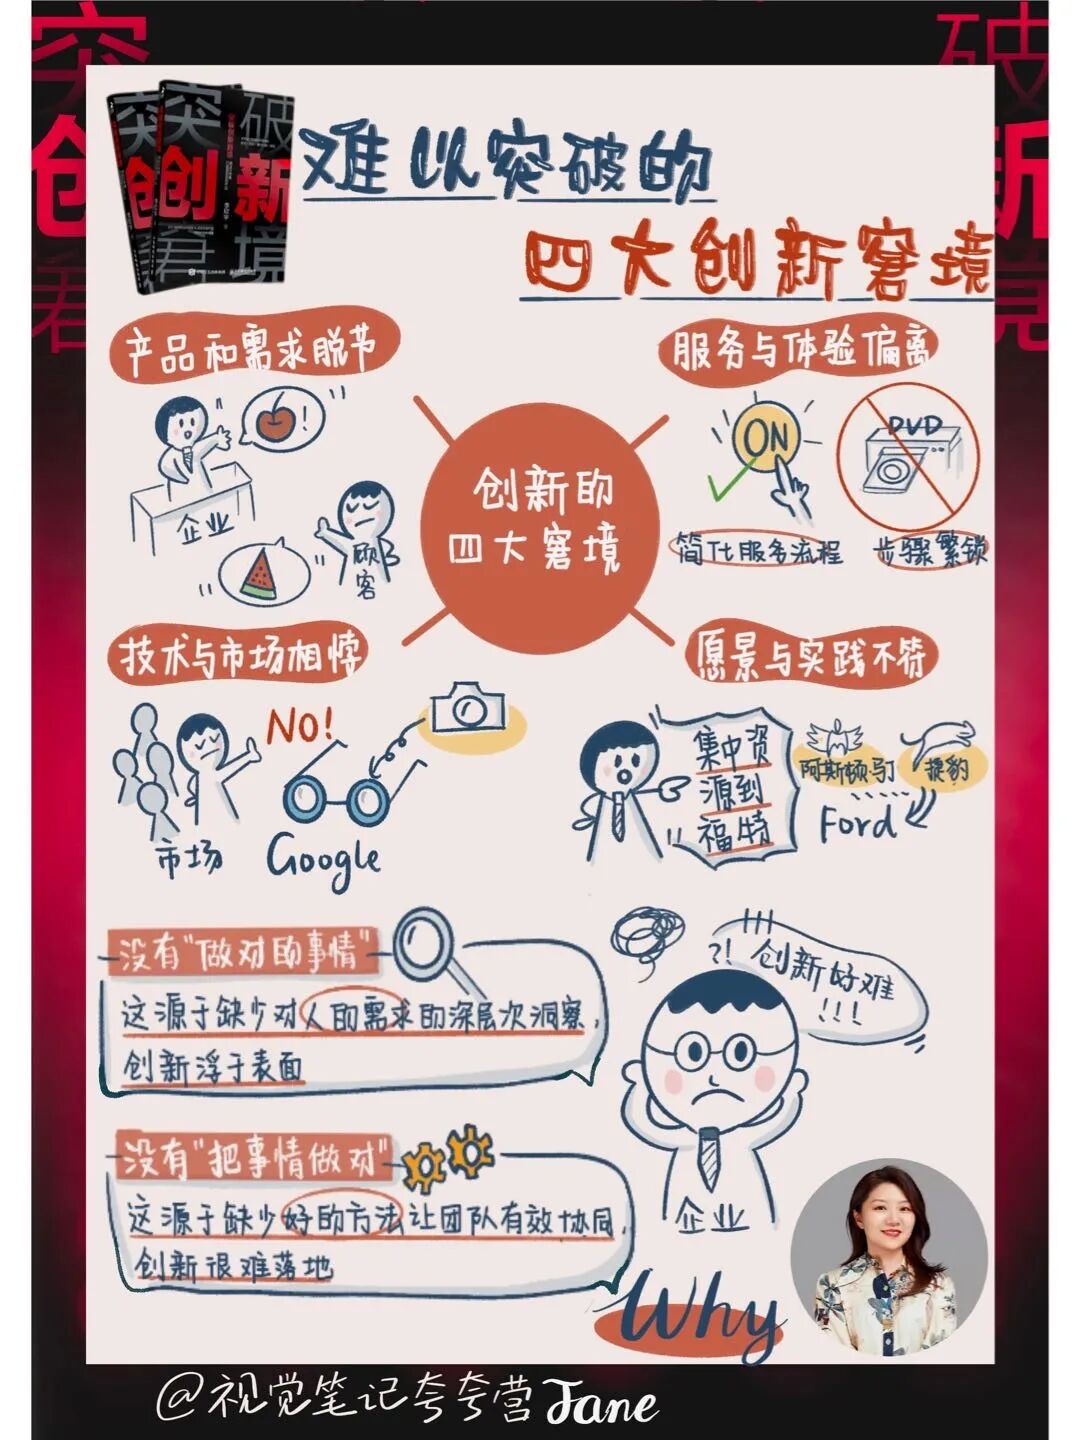 突
破
创
新
窘
境
突
破
创
新
窘
境
难以突破的
四大创新窘境
产品和需求脱节
服务与体验偏离
企业
顾客
ON
DVD
简化服务流程
步骤繁锁
创新的
四大窘境
技术与市场相悖
愿景与实践不符
NO!
市场
Google
集中资
源到
福特
阿斯顿·马丁
捷豹
Ford
没有"做对的事情"
这源于缺少对人的需求的深层次洞察,
创新浮于表面
?! 创新好难
!!!
没有"把事情做对"
这源于缺少好的方法让团队有效协同,
创新很难落地
企业
Why
@视觉笔记夸夸营Jane